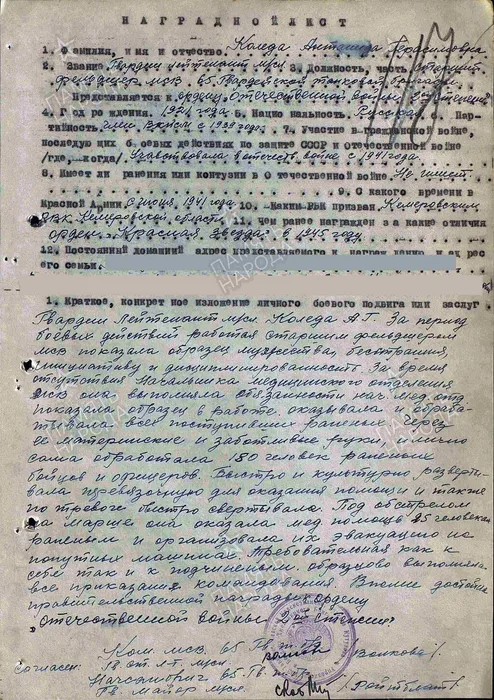 НАГРАДНОЙ ЛИСТ
1. Фамилия, имя и отчество Коледа Антонида Герасимовна
2. Звание Гвардии лейтенант м/сл. 3. Должность, часть Старший
фельдшер мсв 65 Гвардейской танковой бригады
Представляется к ордену Отечественной войны 2ой степени
4. Год рождения 1921 года 5. Национальность Русская 6. Пар
тийность член ВКП(б) с 1939 года 7. Участие в гражданской войне,
последующих боевых действиях по защите СССР и отечественной войне
/где, когда/ Участвовала в отечеств. войне с 1941 года
8. Имеет ли ранения или контузии в Отечественной войне Не имеет
9. С какого времени в
Красной Армии с июля 1941 года 10. Каким РВК призван Кемеровским
РВК Кемеровской области 11. Чем ранее награжден за какие отличия
орден „Красная звезда" в 1945 году
12. Постоянный домашний адрес представляемого к награждению и адрес
его семьи.
1. Краткое, конкретное изложение личного боевого подвига или заслуг
Гвардии Лейтенант м/сл. Коледа А.Г. За период
боевых действий работая старшим фельдшером
мсв показала образец мужества, бесстрашия,
инициативу и дисциплинированность. За время
отсутствия Начальника медицинского отделения
мсв она выполняла обязанности нач. мед. отд.
показала образец в работе, оказывала и обраба-
тывала всех поступивших раненых. Через
ее материнские и заботливые руки, лично
сама обработала 180 человек раненых
бойцов и офицеров. Быстро и культурно разверты-
вала перевязочную для оказания помощи и также
по тревоге быстро свертывала. Под обстрелом
на марше она оказала мед помощь 25 человекам
раненым и организовала их эвакуацию на
попутных машинах. Требовательная как к
себе так и к подчиненым. образцово выполняла
все приказания командования. Вполне достойна
правительственной награды ордену
„Отечественной войны 2ой степени"
Ком. мсв. 65 Гв. т. бр.
Гв. ст. л-т м/сл. Волкова /.
Согласен: Начсанбриг 65 Гв. т. бр.
Гв. майор м/сл. /Ройтблат/
ПАМЯТЬ
НАРОДА